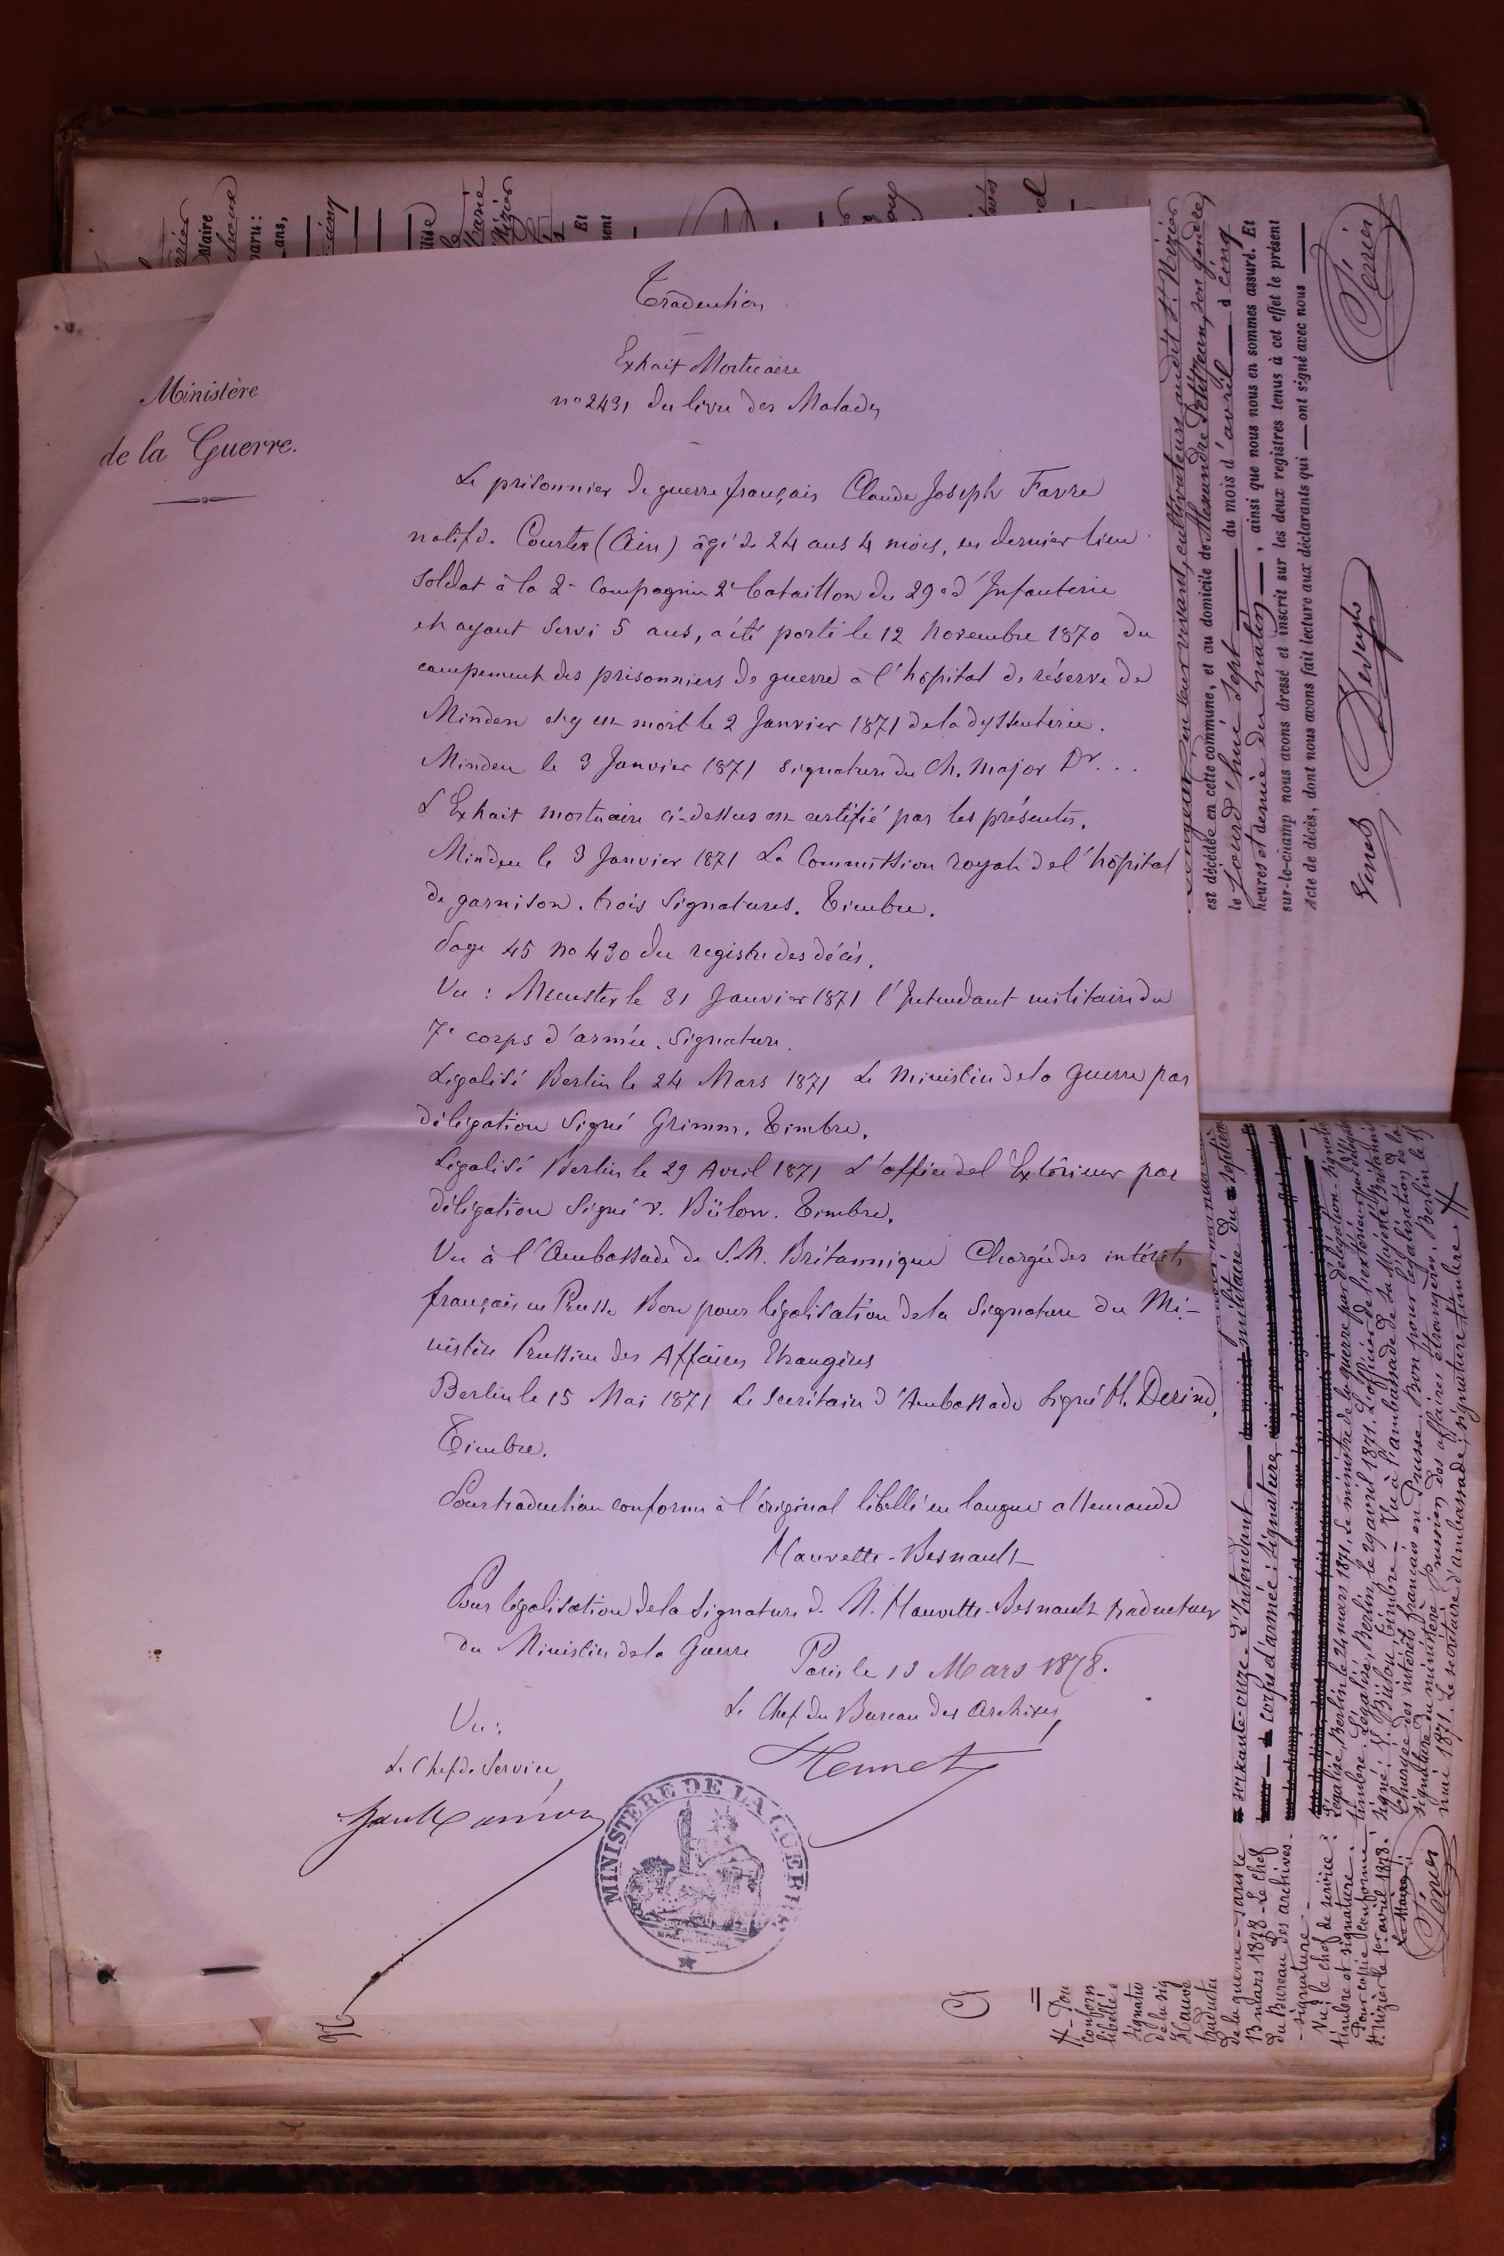 Traduction
Extrait Mortuaire
no 2431 du livre des Malades
Ministère
de la Guerre.
Le prisonnier de guerre français Claude Joseph Favre
natif de Courtes (Ain) âgé de 24 ans 4 mois, en dernier lieu
soldat à la 2e Compagnie 2e bataillon du 29e d'Infanterie
et ayant servi 5 ans, a été porté le 12 Novembre 1870 du
campement des prisonniers de guerre à l'hôpital de réserve de
Minden et y est mort le 2 Janvier 1871 de la dyssenterie.
Minden le 3 Janvier 1871 signature du Ch. Major Dr...
L'Extrait mortuaire ci-dessus est certifié par les présentes.
Minden le 3 Janvier 1871 La Commission royale de l'hôpital
de garnison. trois signatures. Timbre.
Page 45 No 430 du registre des décès.
Vu : Meunster le 31 Janvier 1871 l'Intendant militaire du
7e corps d'armée. Signature.
Légalisé Berlin le 24 Mars 1871 Le Ministère de la Guerre par
délégation Signé Grimm. Timbre.
Légalisé Berlin le 29 Avril 1871 L'office de l'Extérieur par
délégation Signé v. Bülow. Timbre.
Vu à l'Ambassade de S.M. Britannique Chargée des intérêts
français en Prusse Bon pour légalisation de la Signature du Mi-
nistère Prussien des Affaires Etrangères
Berlin le 15 Mai 1871 Le Secrétaire d'Ambassade Signé H. Dering.
Timbre.
Pour traduction conforme à l'original libellé en langue allemande
Hauvette-Besnault
Pour légalisation de la Signature de M. Hauvette-Besnault traducteur
du Ministère de la Guerre Paris le 13 Mars 1878.
Le Chef du Bureau des Archives,
Hennet
Vu:
Le Chef de Service,
MINISTÈRE DE LA GUERRE
cultivateurs audit St. Nizier
est décédée en cette commune, et au domicile de Alexandre Petitjean, son gendre,
le jourd'hui sept du mois d'avril à cinq
heures et demie du matin, ainsi que nous nous en sommes assuré. Et
sur-le-champ nous avons dressé et inscrit sur les deux registres tenus à cet effet le présent
Acte de décès, dont nous avons fait lecture aux déclarants qui ont signé avec nous
Perrier
soixante-onze. L'Intendant militaire du septième
corps d'armée: signature.
Légalisé, Berlin le 24 mars 1871. Le ministre de la guerre par délégation. signature
timbre. Légalisé, Berlin, le 29 avril 1871. L'officier de l'extérieur par délégation
signé: V. Bülou. timbre. Vu à l'ambassade de Sa Majesté Britannique
Chargée des intérêts français en Prusse. Bon pour légalisation de la
signature du ministère Prussien des affaires étrangères. Berlin le 15
mai 1871. Le secrétaire d'ambassade; signature timbre. #
# - Pour
conform
libellé
signatu
de la sig
Hauve
traducteu
de la guerre - Paris le
13 mars 1878 - Le chef
du Bureau des archives.
- signature -
Vu; le chef de service:
timbre et signature.
Pour copie conforme
St. Nizier le 1er avril 1878.
Le Maire
Perrier